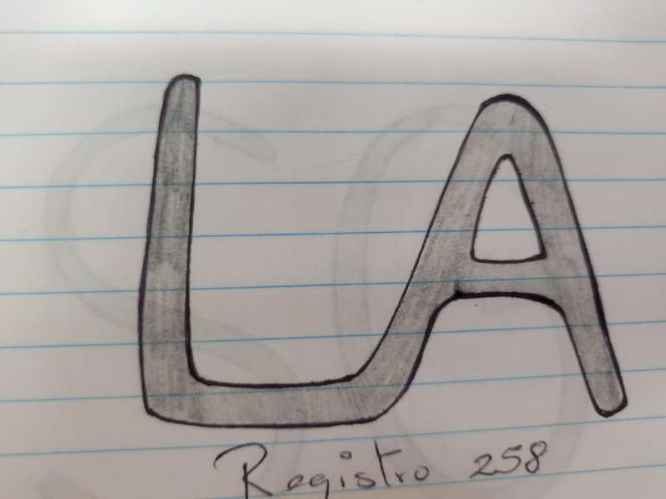 LA
Registro 258